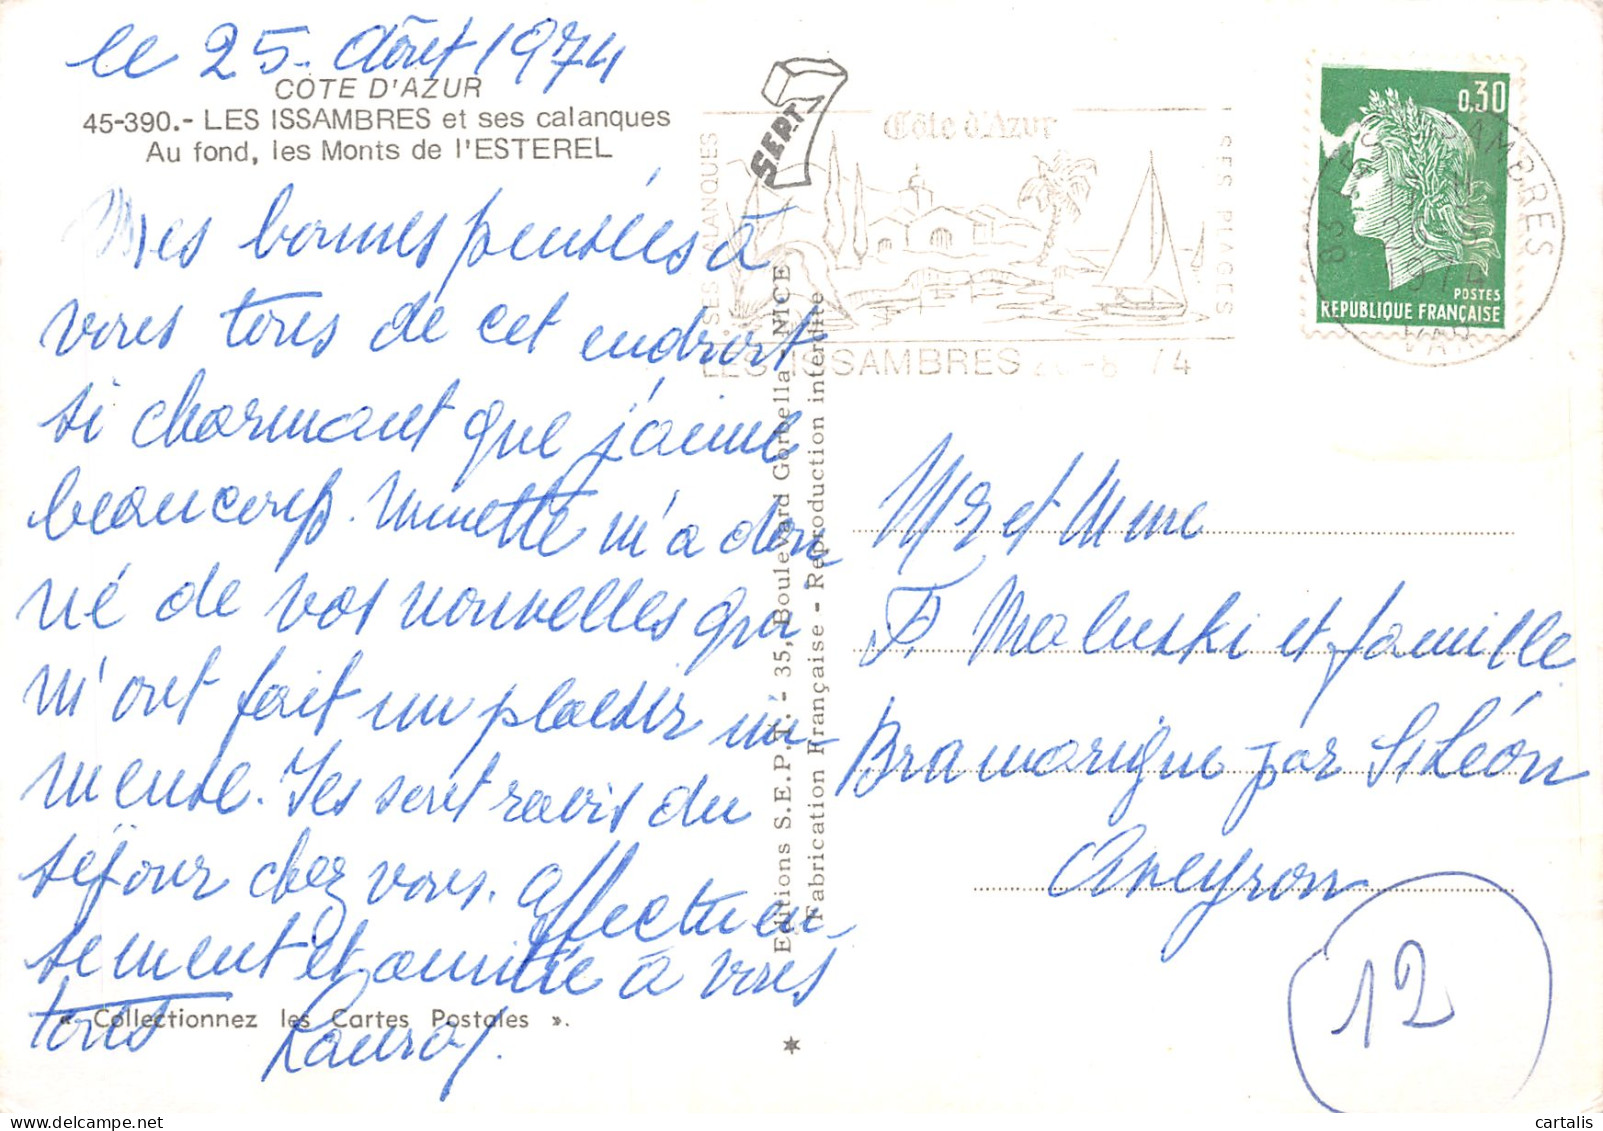 le 25 - Août 1974
CÔTE D'AZUR
45-390.- LES ISSAMBRES et ses calanques
Au fond, les Monts de l'ESTEREL
Mes bonnes pensées à
vous tous de cet endroit
si charmant que j'aime
beaucoup. Minette m'a don
né de vos nouvelles qui
m'ont fait un plaisir im-
mense. Ils sont ravis du
séjour chez vous. Affectueu
sement et amitié à vous
tous
« Collectionnez les Cartes Postales ».
SEPT
7
Côte d'Azur
SES CALANQUES
SES PLAGES
LES ISSAMBRES
0,30
POSTES
REPUBLIQUE FRANÇAISE
83 LES ISSAMBRES
VAR
Editions S.E.P.T. - 35, Boulevard Gorbella - NICE
Fabrication Française - Reproduction interdite
Mr et Mme
F. Maluski et famille
Bramarigue par St Léon
Aveyron
12
cartalis